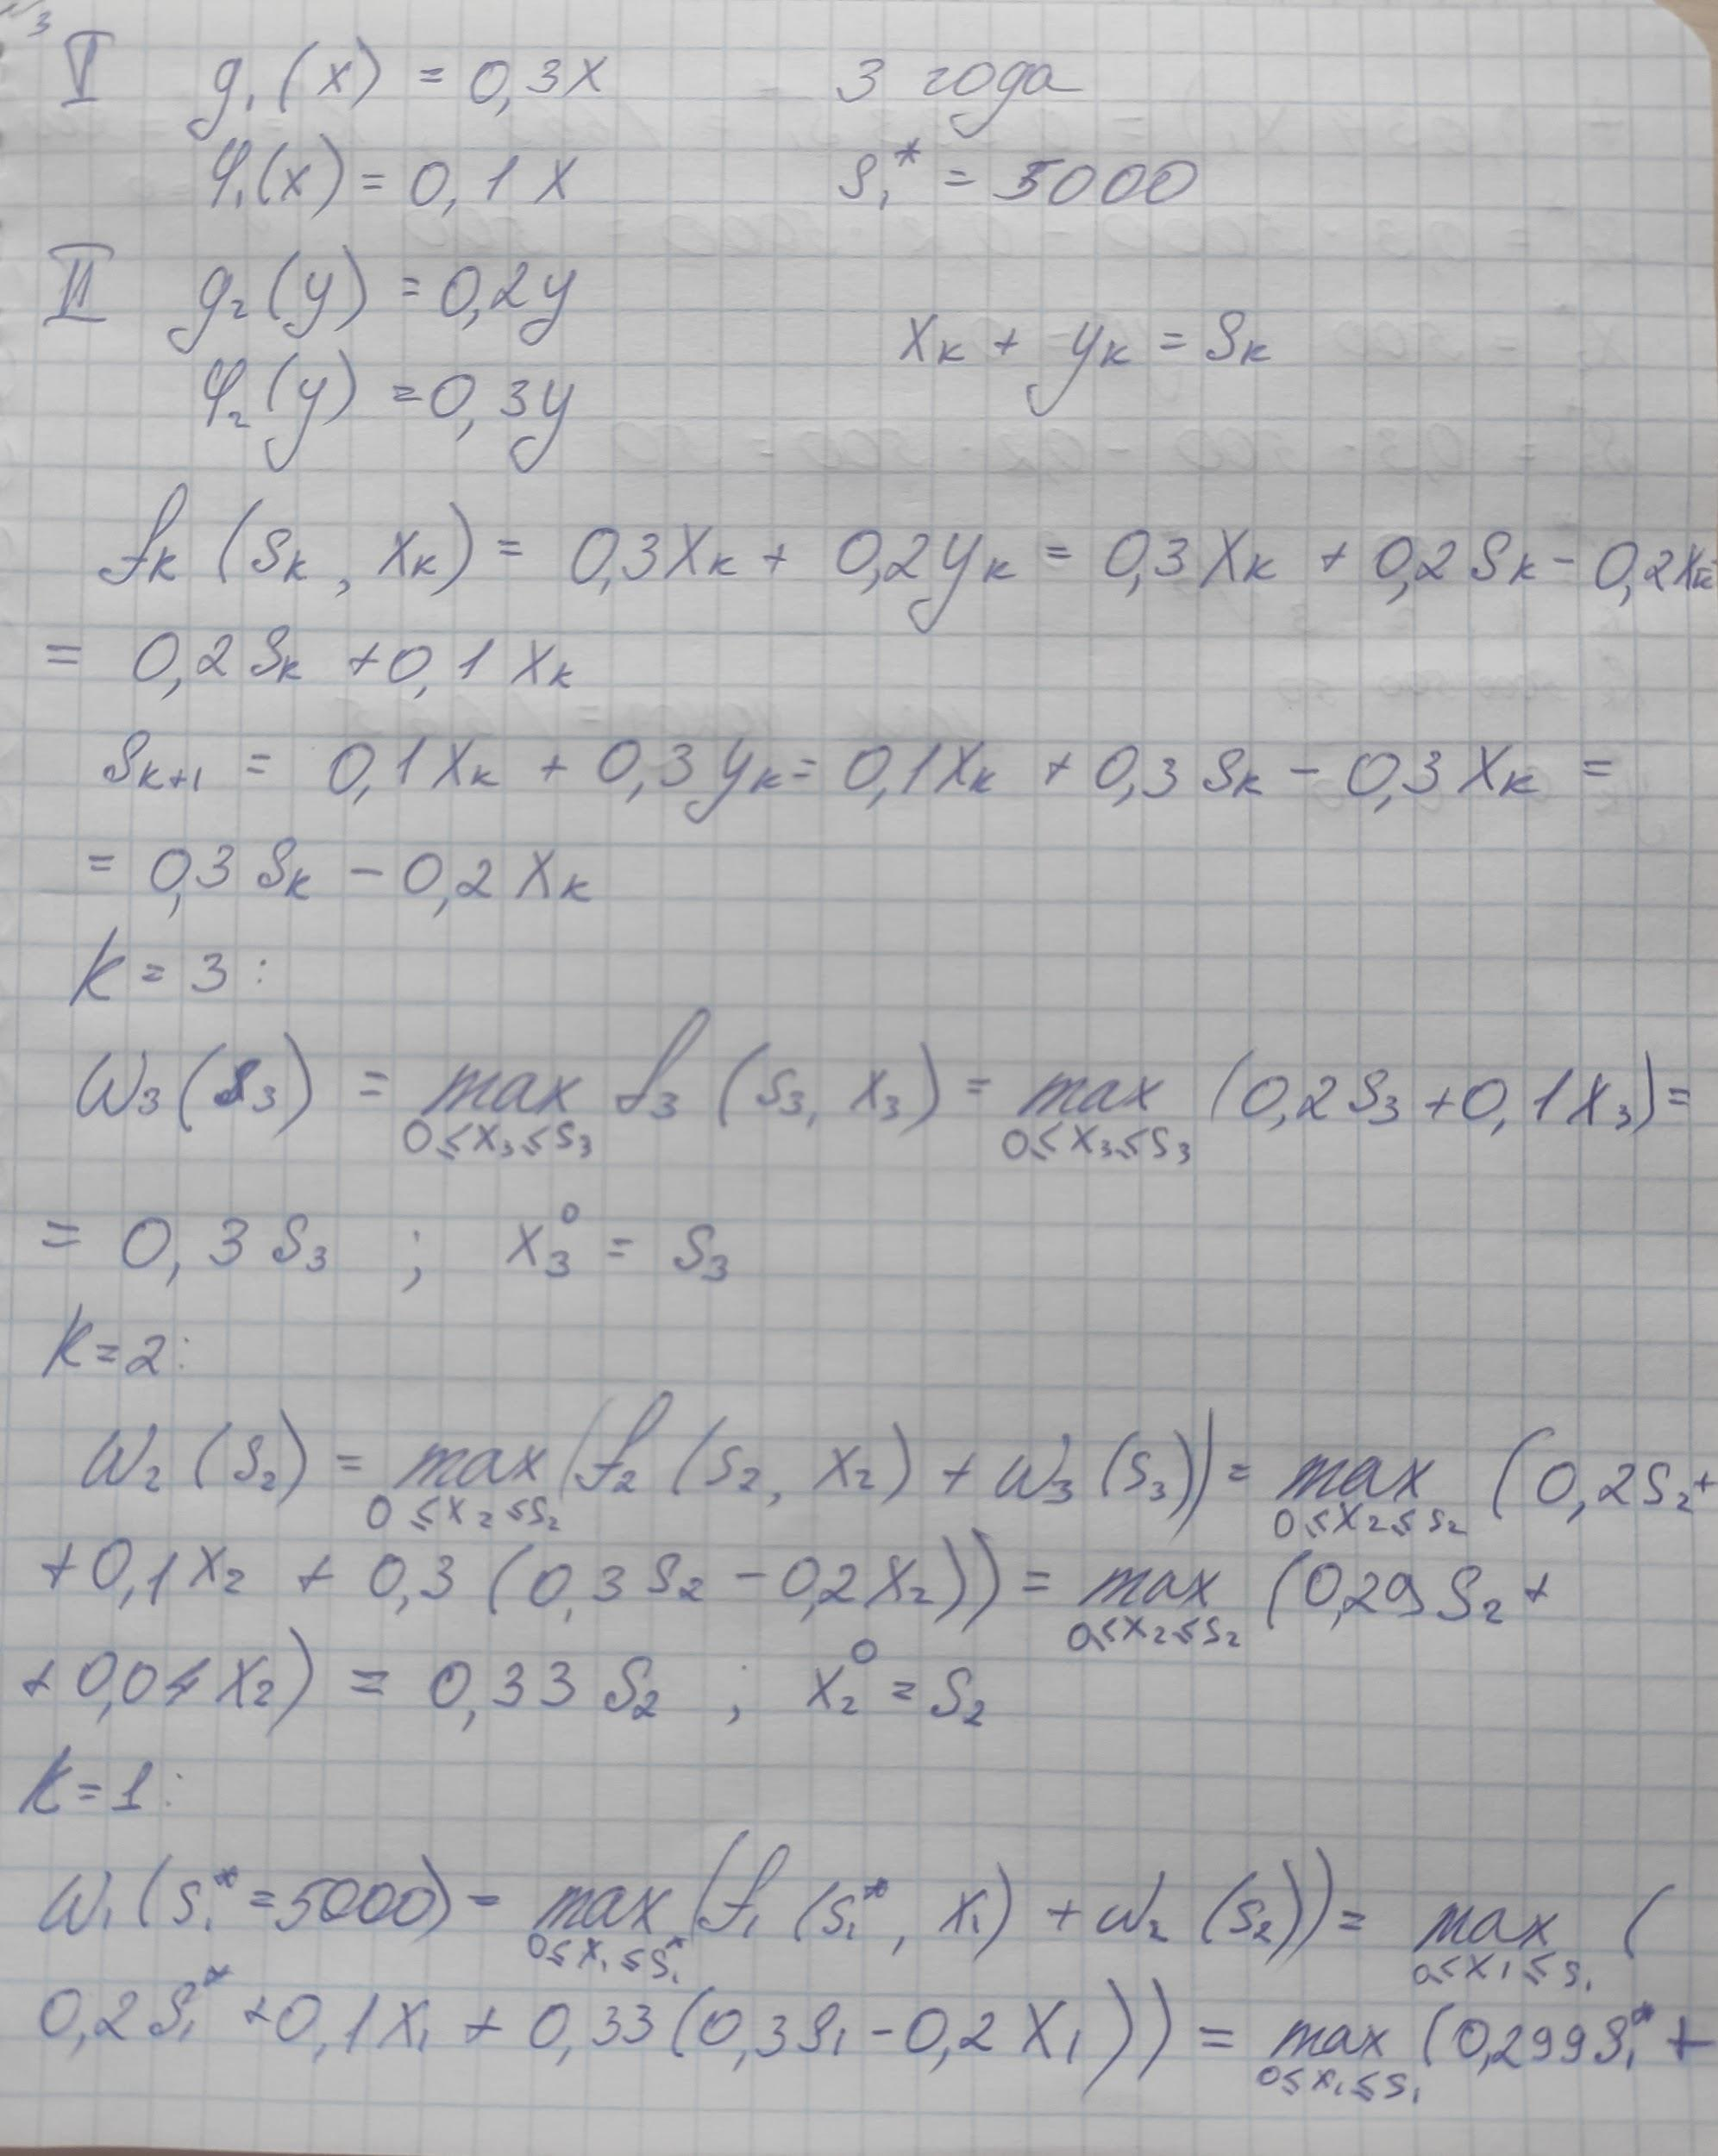 3
I g₁(x) = 0,3x 3 года
φ₁(x) = 0,1x s₁* = 5000
II g₂(y) = 0,2y
xₖ + yₖ = sₖ
φ₂(y) = 0,3y
fₖ (sₖ, xₖ) = 0,3xₖ + 0,2yₖ = 0,3xₖ + 0,2sₖ - 0,2xₖ=
= 0,2sₖ + 0,1xₖ
sₖ₊₁ = 0,1xₖ + 0,3yₖ = 0,1xₖ + 0,3sₖ - 0,3xₖ =
= 0,3sₖ - 0,2xₖ
k = 3:
W₃(s₃) = max f₃ (s₃, x₃) = max (0,2s₃ + 0,1x₃) =
0≤x₃≤s₃ 0≤x₃≤s₃
= 0,3s₃ ; x₃⁰ = s₃
k=2:
W₂(s₂) = max (f₂ (s₂, x₂) + W₃(s₃)) = max (0,2s₂+
0≤x₂≤s₂ 0≤x₂≤s₂
+0,1x₂ + 0,3(0,3s₂ - 0,2x₂)) = max (0,29s₂ +
0≤x₂≤s₂
+0,04x₂) = 0,33s₂ ; x₂⁰ = s₂
k=1:
W₁(s₁* = 5000) = max (f₁ (s₁*, x₁) + W₂(s₂)) = max (
0≤x₁≤s₁* 0≤x₁≤s₁
0,2s₁* + 0,1x₁ + 0,33(0,3s₁ - 0,2x₁)) = max (0,299s₁* +
0≤x₁≤s₁